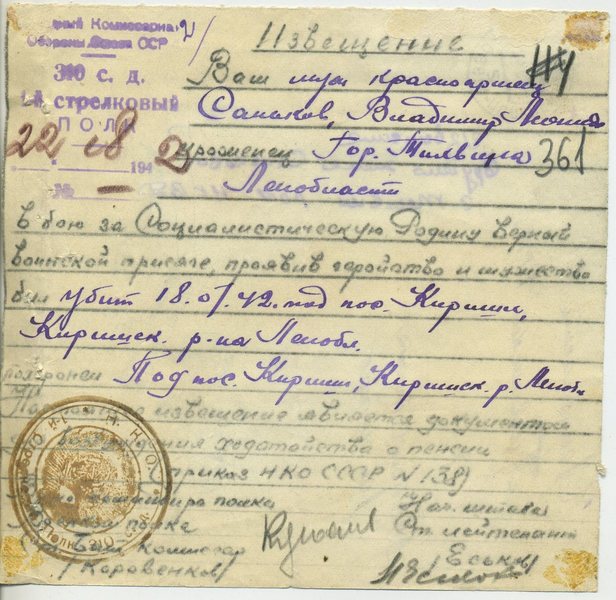 ный Комиссариат
Обороны Союза ССР
310 с. д.
стрелковый
ПОЛК
22 08 1942
№ —
Извещение
Ваш муж красноармеец
Саньков, Владимир
уроженец Гор. Тихвина 361
Ленобласти
в бою за Социалистическую Родину верный
воинской присяге, проявив геройство и мужество
был убит 18.07.42. под пос. Кириши,
Киришск. р-на Ленобл.
похоронен Под пос. Кириши, Киришск. р. Ленобл
извещение является документом
возбуждения ходатайства о пенсии
(приказ НКО СССР № 138)
командира полка Нач. штаба
полка Ст. лейтенант
Бат. комиссар Еськов
/Коровенков/